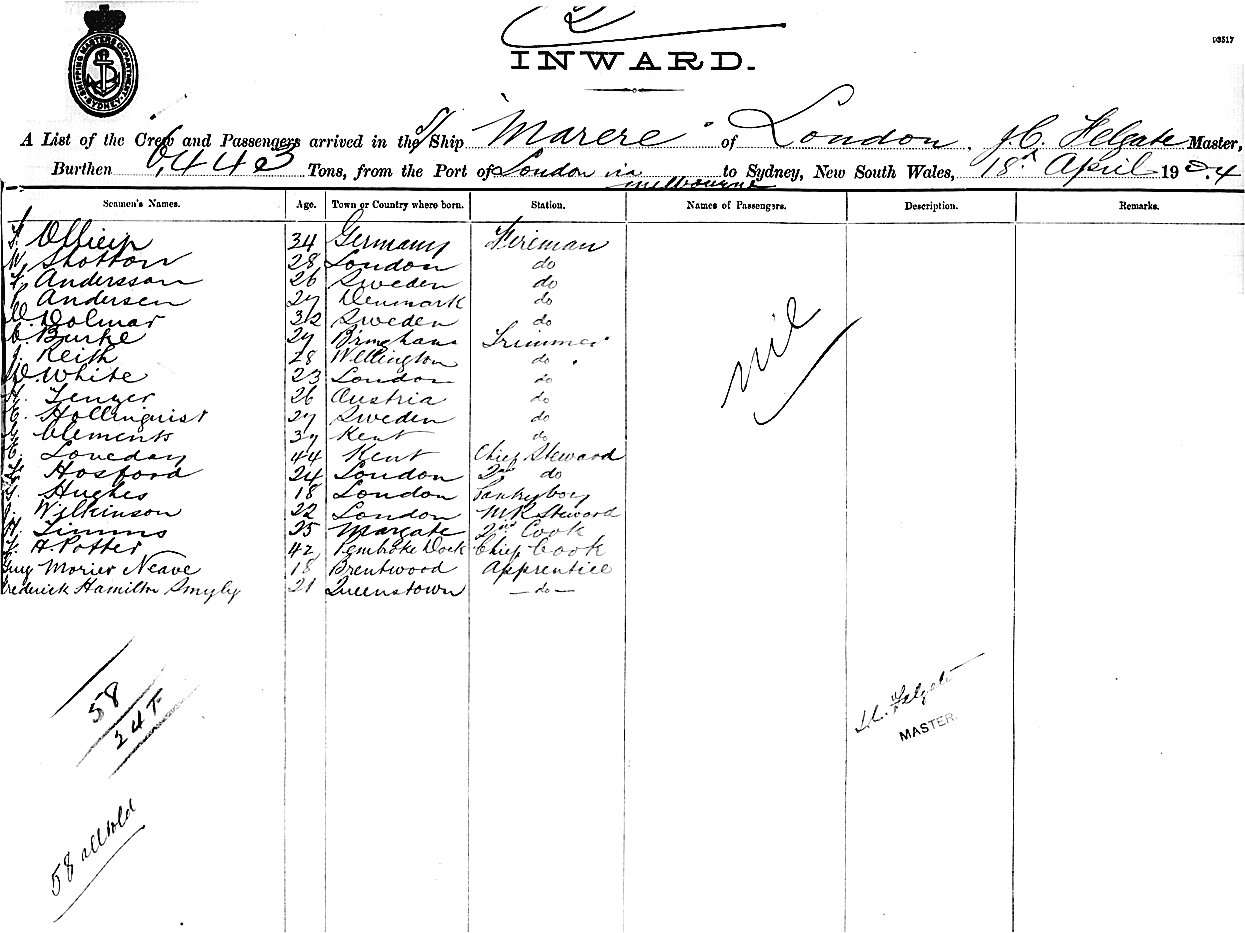 2
INWARD.
93517
SHIPPING MASTERS DEPARTMENT SYDNEY
A List of the Crew and Passengers arrived in the S/ Ship "Marere" of London. J.C. Felgate Master,
Burthen 6,443 Tons, from the Port of London via Melbourne to Sydney, New South Wales, 18th April 1904
Seamen's Names. Age. Town or Country where born. Station. Names of Passengers. Description. Remarks.
34 Germany Fireman
Shotton 28 London do
Andersson 26 Sweden do
Andersen 27 Denmark do
Dolmar 32 Sweden do
Burke 27 Trimmer
J. Keith 28 Wellington do
White 23 London do
H. Tenzer 26 Austria do
Hollinquist 27 Sweden do
Clements 37 Kent do
Loveday 44 Kent Chief Steward
Hosford 24 London 2nd do
Hughes 18 London Pantryboy
Wilkinson 22 London M R Steward
H. Timms 25 Margate 2nd Cook
A. Potter 42 Pembroke Dock Chief Cook
Morier Neave 18 Brentwood Apprentice
rederick Hamilton Smyly 21 Queenstown — do —
nil
58
24 F
58 all told
J.C. Felgate
MASTER.